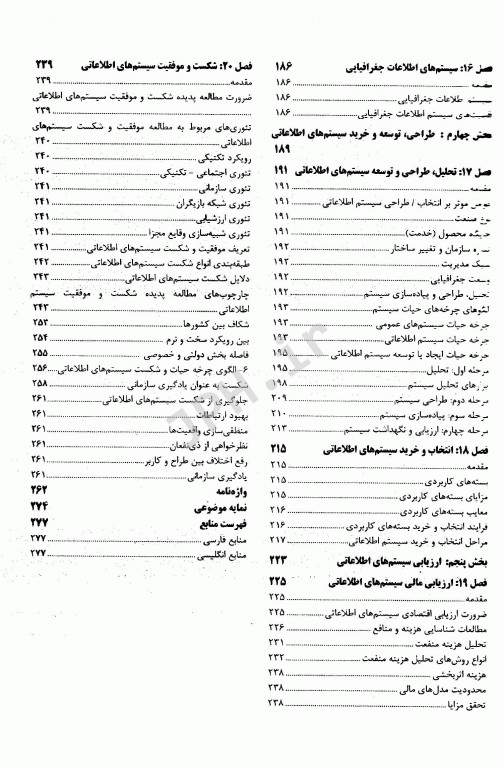 فصل ۱۶: سیستم‌های اطلاعات جغرافیایی ۱۸۶
مقدمه ۱۸۶
سیستم اطلاعات جغرافیایی ۱۸۶
قسمت‌های سیستم اطلاعات جغرافیایی ۱۸۶
بخش چهارم : طراحی، توسعه و خرید سیستم‌های اطلاعاتی
۱۸۹
فصل ۱۷: تحلیل، طراحی و توسعه سیستم‌های اطلاعاتی ۱۹۱
مقدمه ۱۹۱
عوامل موثر بر انتخاب / طراحی سیستم اطلاعاتی ۱۹۱
نوع صنعت ۱۹۱
محصول (خدمت) ۱۹۱
سازمان و تغییر ساختار ۱۹۲
سبک مدیریت ۱۹۲
وسعت جغرافیایی ۱۹۲
تحلیل، طراحی و پیاده‌سازی سیستم ۱۹۲
الگوهای چرخه‌های حیات سیستم ۱۹۳
چرخه حیات سیستم‌های عمومی ۱۹۳
چرخه حیات سیستم اطلاعاتی ۱۹۳
چرخه حیات ایجاد یا توسعه سیستم اطلاعاتی ۱۹۵
مرحله اول: تحلیل ۱۹۵
ابزارهای تحلیل سیستم ۱۹۸
مرحله دوم: طراحی سیستم ۲۰۹
مرحله سوم: پیاده‌سازی سیستم ۲۱۰
مرحله چهارم: ارزیابی و نگهداشت سیستم ۲۱۳
فصل ۱۸: انتخاب و خرید سیستم‌های اطلاعاتی ۲۱۵
مقدمه ۲۱۵
بسته‌های کاربردی ۲۱۵
مزایای بسته‌های کاربردی ۲۱۵
معایب بسته‌های کاربردی ۲۱۶
فرایند انتخاب و خرید بسته‌های کاربردی ۲۱۶
مراحل انتخاب و خرید سیستم اطلاعاتی ۲۱۷
بخش پنجم: ارزیابی سیستم‌های اطلاعاتی ۲۲۳
فصل ۱۹: ارزیابی مالی سیستم‌های اطلاعاتی ۲۲۵
مقدمه ۲۲۵
ضرورت ارزیابی اقتصادی سیستم‌های اطلاعاتی ۲۲۵
مطالعات شناسایی هزینه و منافع ۲۲۶
تحلیل هزینه منفعت ۲۳۱
انواع روش‌های تحلیل هزینه منفعت ۲۳۲
هزینه اثربخشی ۲۳۸
محدودیت مدل‌های مالی ۲۳۸
تحقق مزایا ۲۳۸
فصل ۲۰: شکست و موفقیت سیستم‌های اطلاعاتی ۲۳۹
مقدمه ۲۳۹
ضرورت مطالعه پدیده شکست و موفقیت سیستم‌های اطلاعاتی
۲۳۹
تئوری‌های مربوط به مطالعه موفقیت و شکست سیستم‌های
اطلاعاتی ۲۴۰
رویکرد تکنیکی ۲۴۰
تئوری اجتماعی - تکنیکی ۲۴۰
تئوری سازمانی ۲۴۱
تئوری شبکه بازیگران ۲۴۱
تئوری ارزشیابی ۲۴۱
تئوری شبیه‌سازی وقایع مجزا ۲۴۱
تعریف موفقیت و شکست سیستم‌های اطلاعاتی ۲۴۱
طبقه‌بندی انواع شکست سیستم‌های اطلاعاتی ۲۴۲
دلایل شکست سیستم‌های اطلاعاتی ۲۴۳
چارچوب‌های مطالعه پدیده شکست و موفقیت سیستم
اطلاعاتی ۲۴۳
شکاف بین کشورها ۲۵۳
بین رویکرد سخت و نرم ۲۵۴
فاصله بخش دولتی و خصوصی ۲۵۵
۶- الگوی چرخه حیات و شکست سیستم‌های اطلاعاتی ۲۵۶
شکست به عنوان یادگیری سازمانی ۲۵۸
جلوگیری از شکست سیستم‌های اطلاعاتی ۲۶۱
بهبود ارتباطات ۲۶۱
منطقی‌سازی واقعیت‌ها ۲۶۱
نظرخواهی از ذی‌نفعان ۲۶۱
رفع اختلاف بین طراح و کاربر ۲۶۱
یادگیری سازمانی ۲۶۱
واژه‌نامه ۲۶۲
نمایه موضوعی ۲۷۴
فهرست منابع ۲۷۷
منابع فارسی ۲۷۷
منابع انگلیسی ۲۷۷